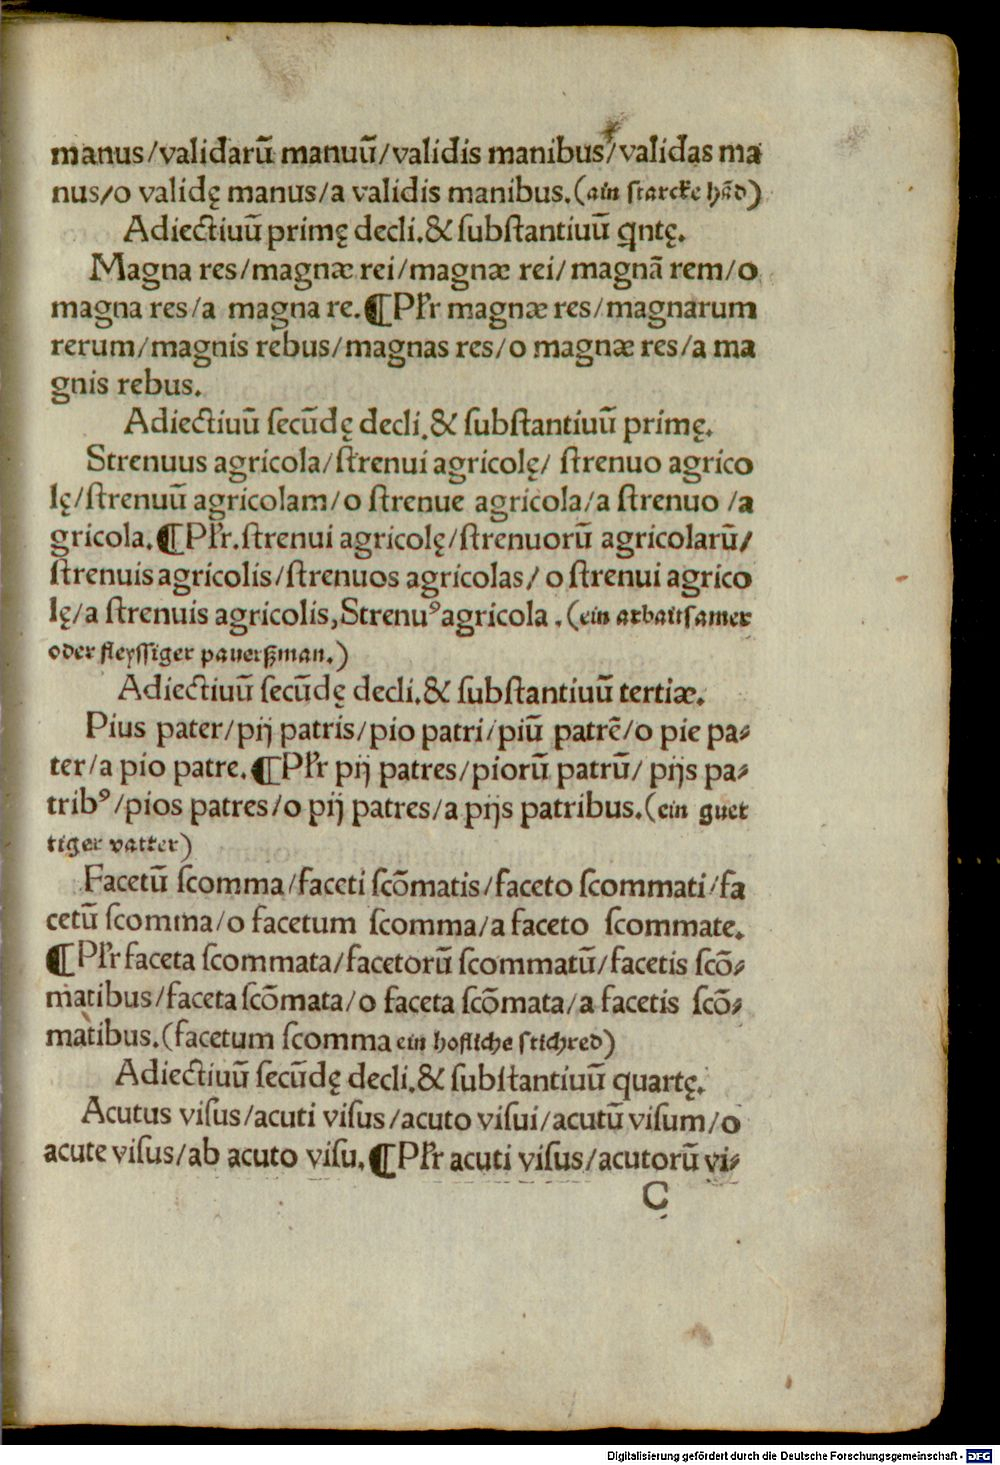 manus/validarū manuū/validis manibus/validas ma
nus/o validę manus/a validis manibus.(ain starcke hād)
Adiectiuū primę decli.& ſubſtantiuū qntę.
Magna res/magnæ rei/magnæ rei/magnā rem/o
magna res/a magna re.¶Płr magnæ res/magnarum
rerum/magnis rebus/magnas res/o magnæ res/a ma
gnis rebus.
Adiectiuū ſecūdę decli.& ſubſtantiuū primę.
Strenuus agricola/ſtrenui agricolę/ ſtrenuo agrico
lę/ſtrenuū agricolam/o ſtrenue agricola/a ſtrenuo /a
gricola.¶Płr.ſtrenui agricolę/ſtrenuorū agricolarū/
ſtrenuis agricolis/ſtrenuos agricolas/ o ſtrenui agrico
lę/a ſtrenuis agricolis,Strenuꝰ agricola .(ein arbaitſamer
oder fleyſſiger pauerßman.)
Adiectiuū ſecūdę decli.& ſubſtantiuū tertiæ.
Pius pater/pij patris/pio patri/piū patrē/o pie pa⸗
ter/a pio patre.¶Płr pij patres/piorū patrū/ pijs pa⸗
tribꝰ/pios patres/o pij patres/a pijs patribus.(ein guet
tiger vatter)
Facetū ſcomma/faceti ſcōmatis/faceto ſcommati/fa
cetū ſcomma/o facetum ſcomma/a faceto ſcommate.
¶Płr faceta ſcommata/facetorū ſcommatū/facetis ſcō⸗
matibus/faceta ſcōmata/o faceta ſcōmata/a facetis ſcō⸗
matibus.(facetum ſcomma ein hofliche ſtichred)
Adiectiuū ſecūdę decli.& ſubſtantiuū quartę.
Acutus viſus/acuti viſus/acuto viſui/acutū viſum/o
acute viſus/ab acuto viſu.¶Płr acuti viſus/acutorū vi⸗
C
Digitalisierung gefördert durch die Deutsche Forschungsgemeinschaft - DFG